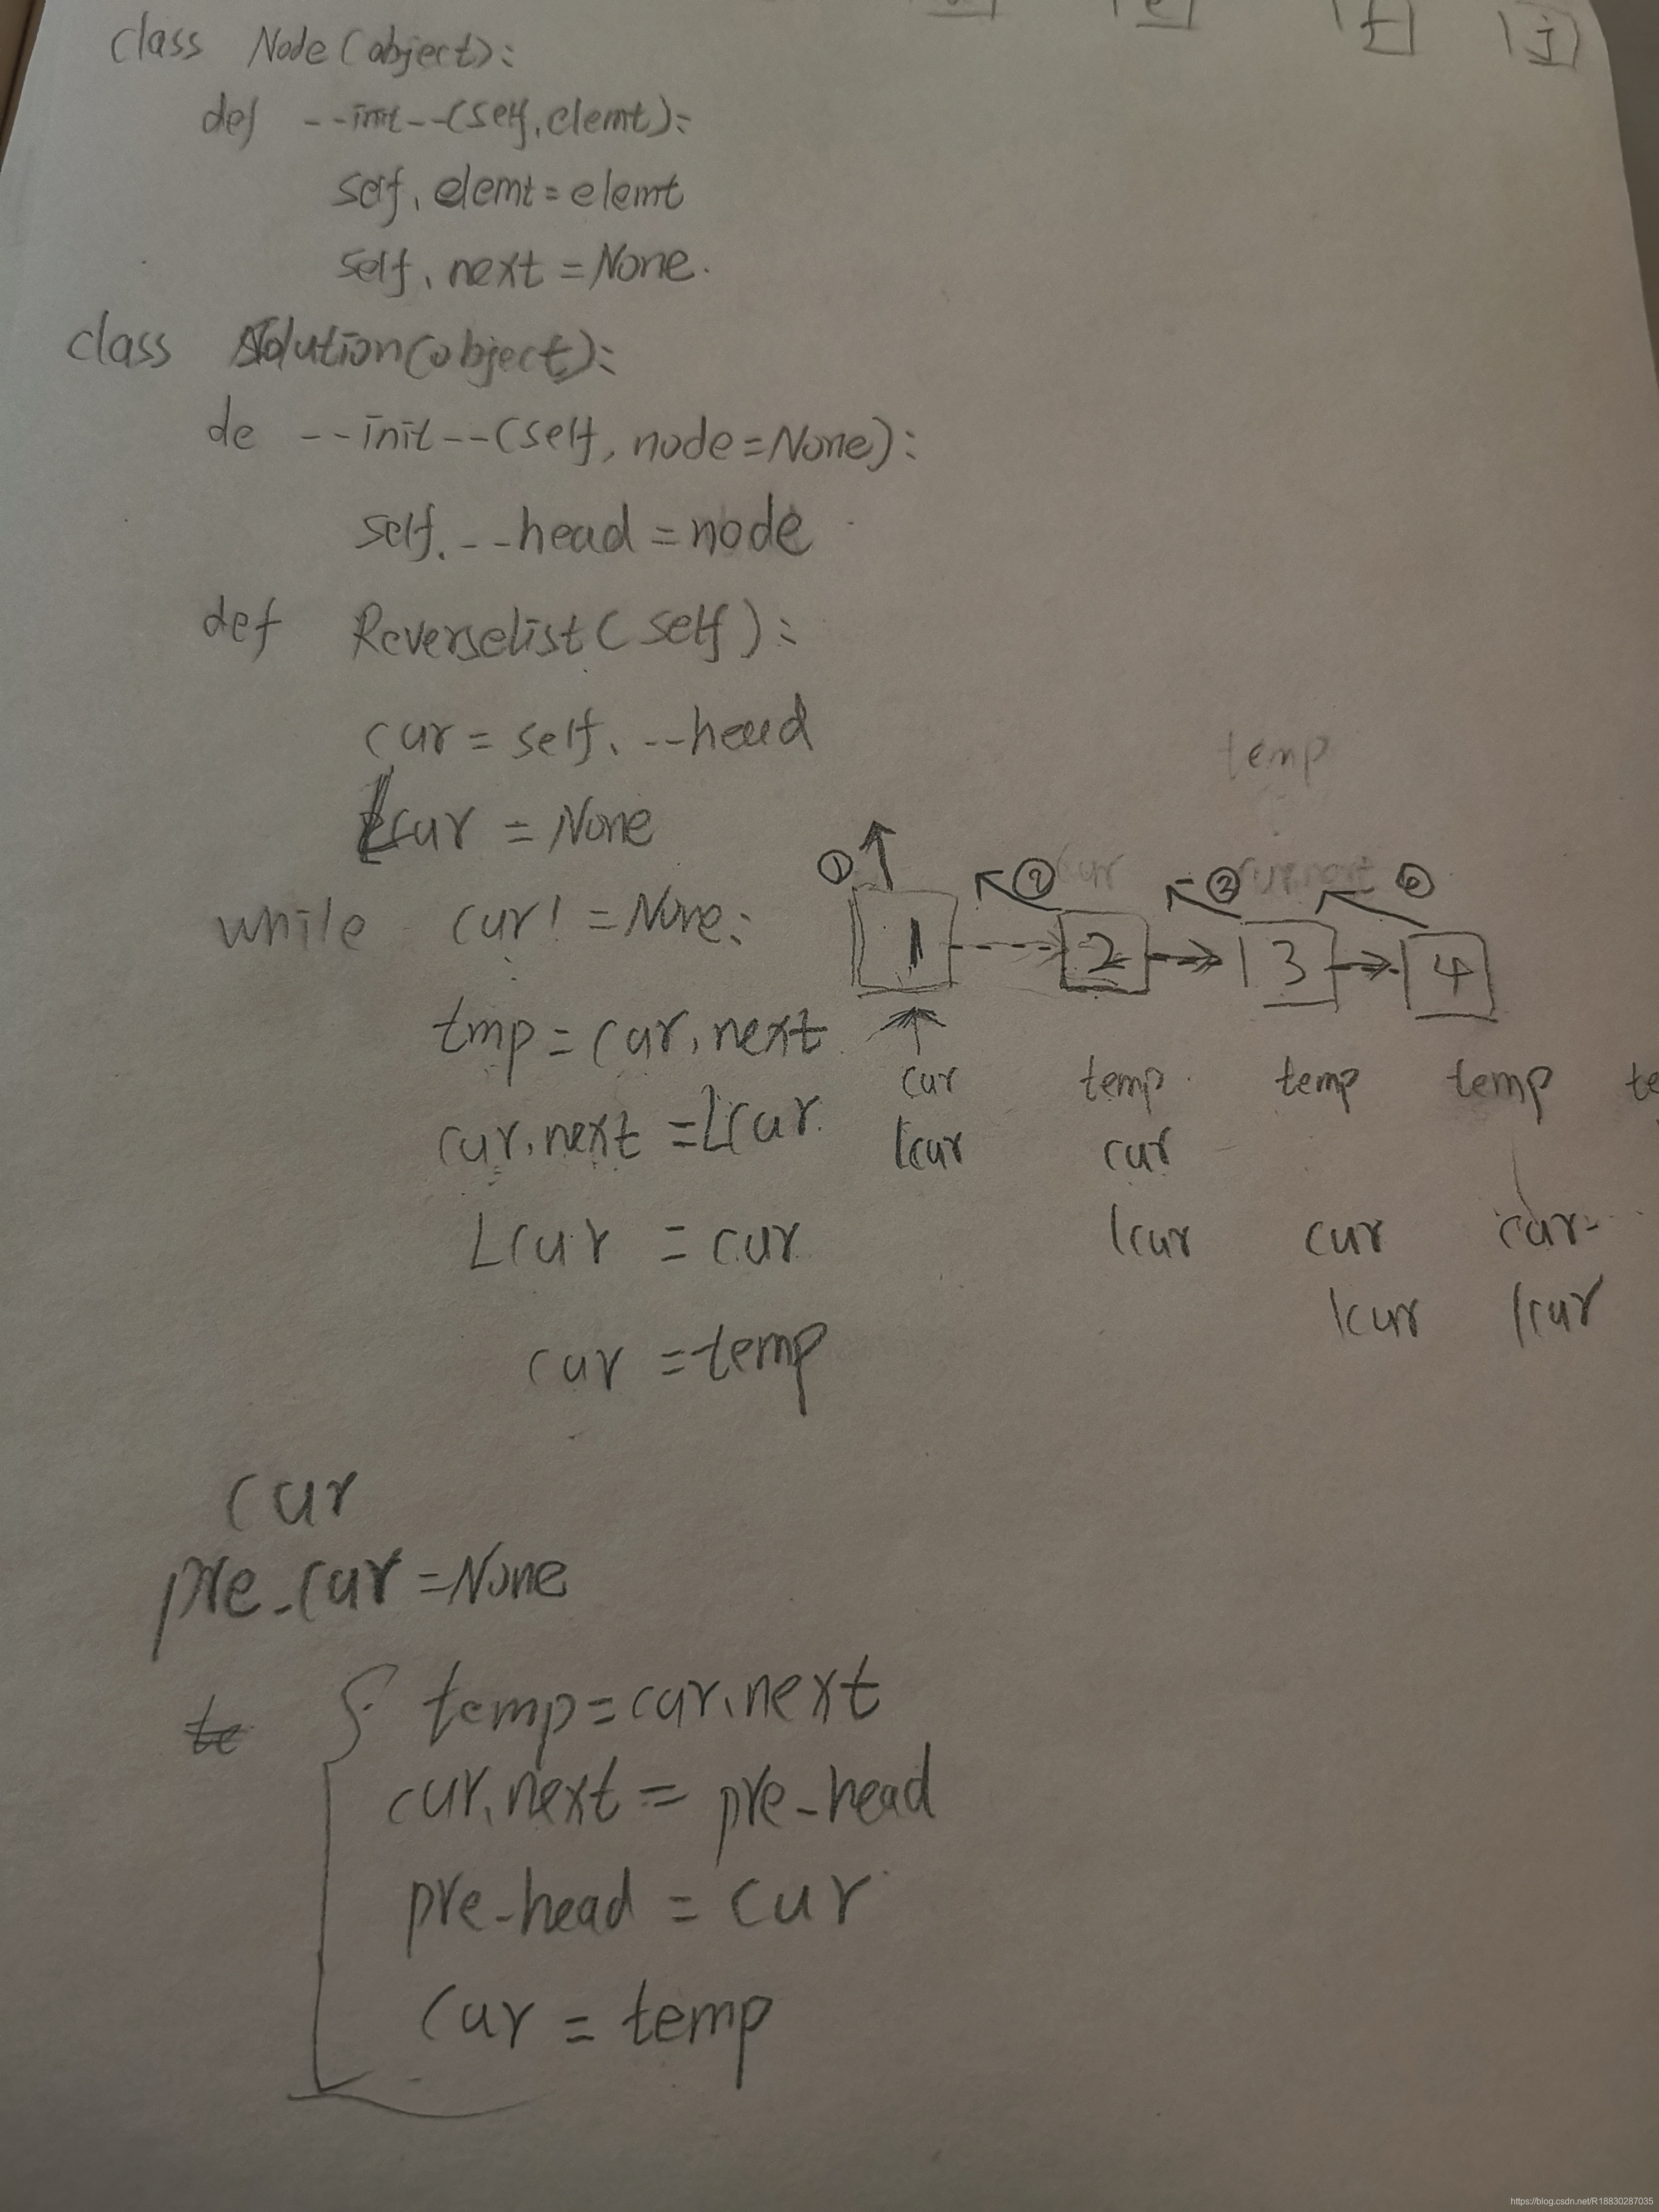 class Node(object):
def --init--(self, elemt):
self. elemt = elemt
self. next = None.
class Solution(object):
de --init--(self, node=None):
self. --head = node
def Reverselist(self):
cur = self. --head
Lcur = None
while cur! = None:
tmp = cur. next
cur. next = Lcur.
Lcur = cur
cur = temp
temp
cur
① ② ③ ④
1 2 3 4
cur temp temp temp te
lcur cur
lcur cur cur
lcur lcur
cur
pre_cur = None
te
temp = cur. next
cur. next = pre_head
pre_head = cur
cur = temp
https://blog.csdn.net/R18830287035